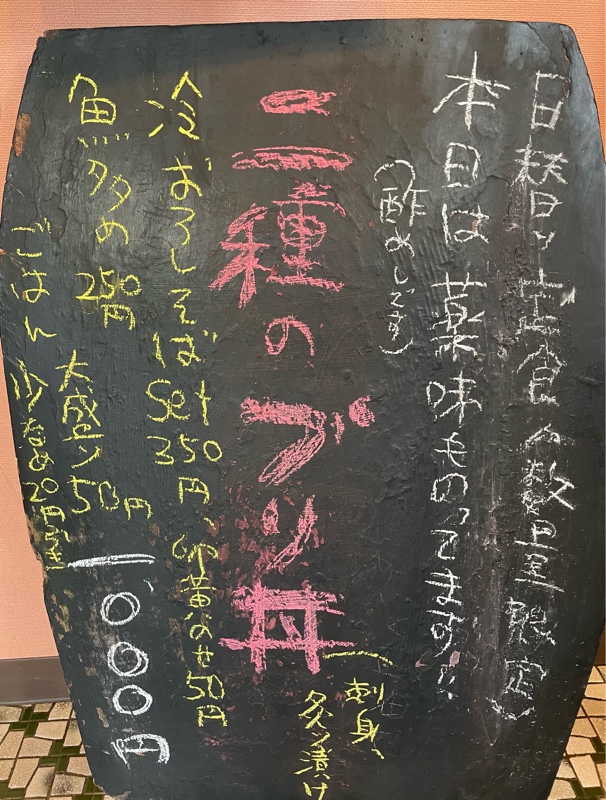 日替り定食(数量限定)
本日は薬味ものってます!!
(酢めしです)
二種のブリ丼
刺身、
炙り漬け
冷おろしそばSet 350円、卵黄のせ50円
魚多め 250円 大盛り50円
ごはん少なめ20円
一、000円